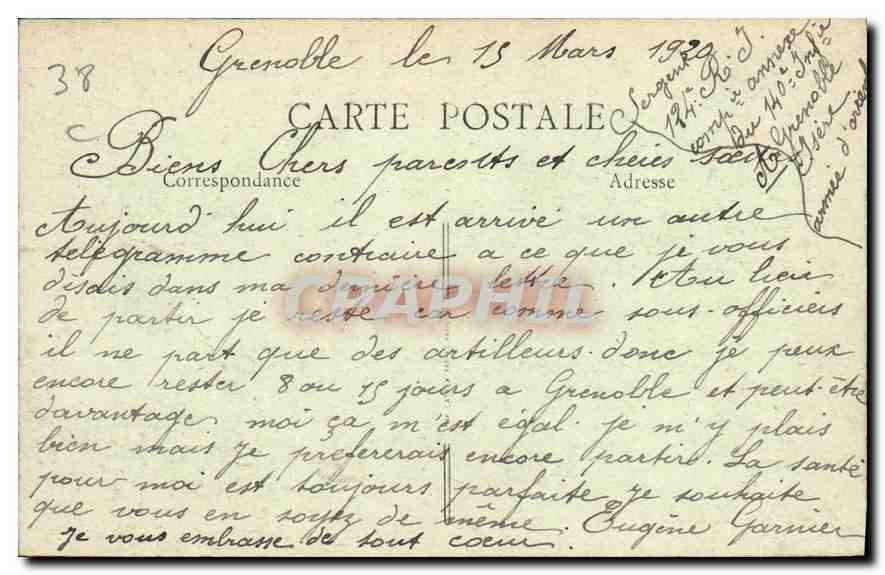 Grenoble le 15 Mars 1920
38
c
CARTE POSTALE
Sergent
124e R. I.
Compie annexe
du 140e Infie
Grenoble
Isère
armée d'orient
Biens Chers parents et chères sœurs
Correspondance Adresse
Aujourd'hui il est arrivé un autre
télégramme contraire a ce que je vous
disais dans ma dernière lettre. Au lieu
de partir je reste car comme sous-officiers
il ne part que des artilleurs. donc je peux
encore rester 8 ou 15 jours a Grenoble et peut-être
davantage. moi ça m'est égal. je m'y plais
bien mais je préfererais encore partir. La santé
pour moi est toujours parfaite je souhaite
que vous en soyez de même. Eugène Garnier
je vous embrasse de tout cœur.
CRAPHIL